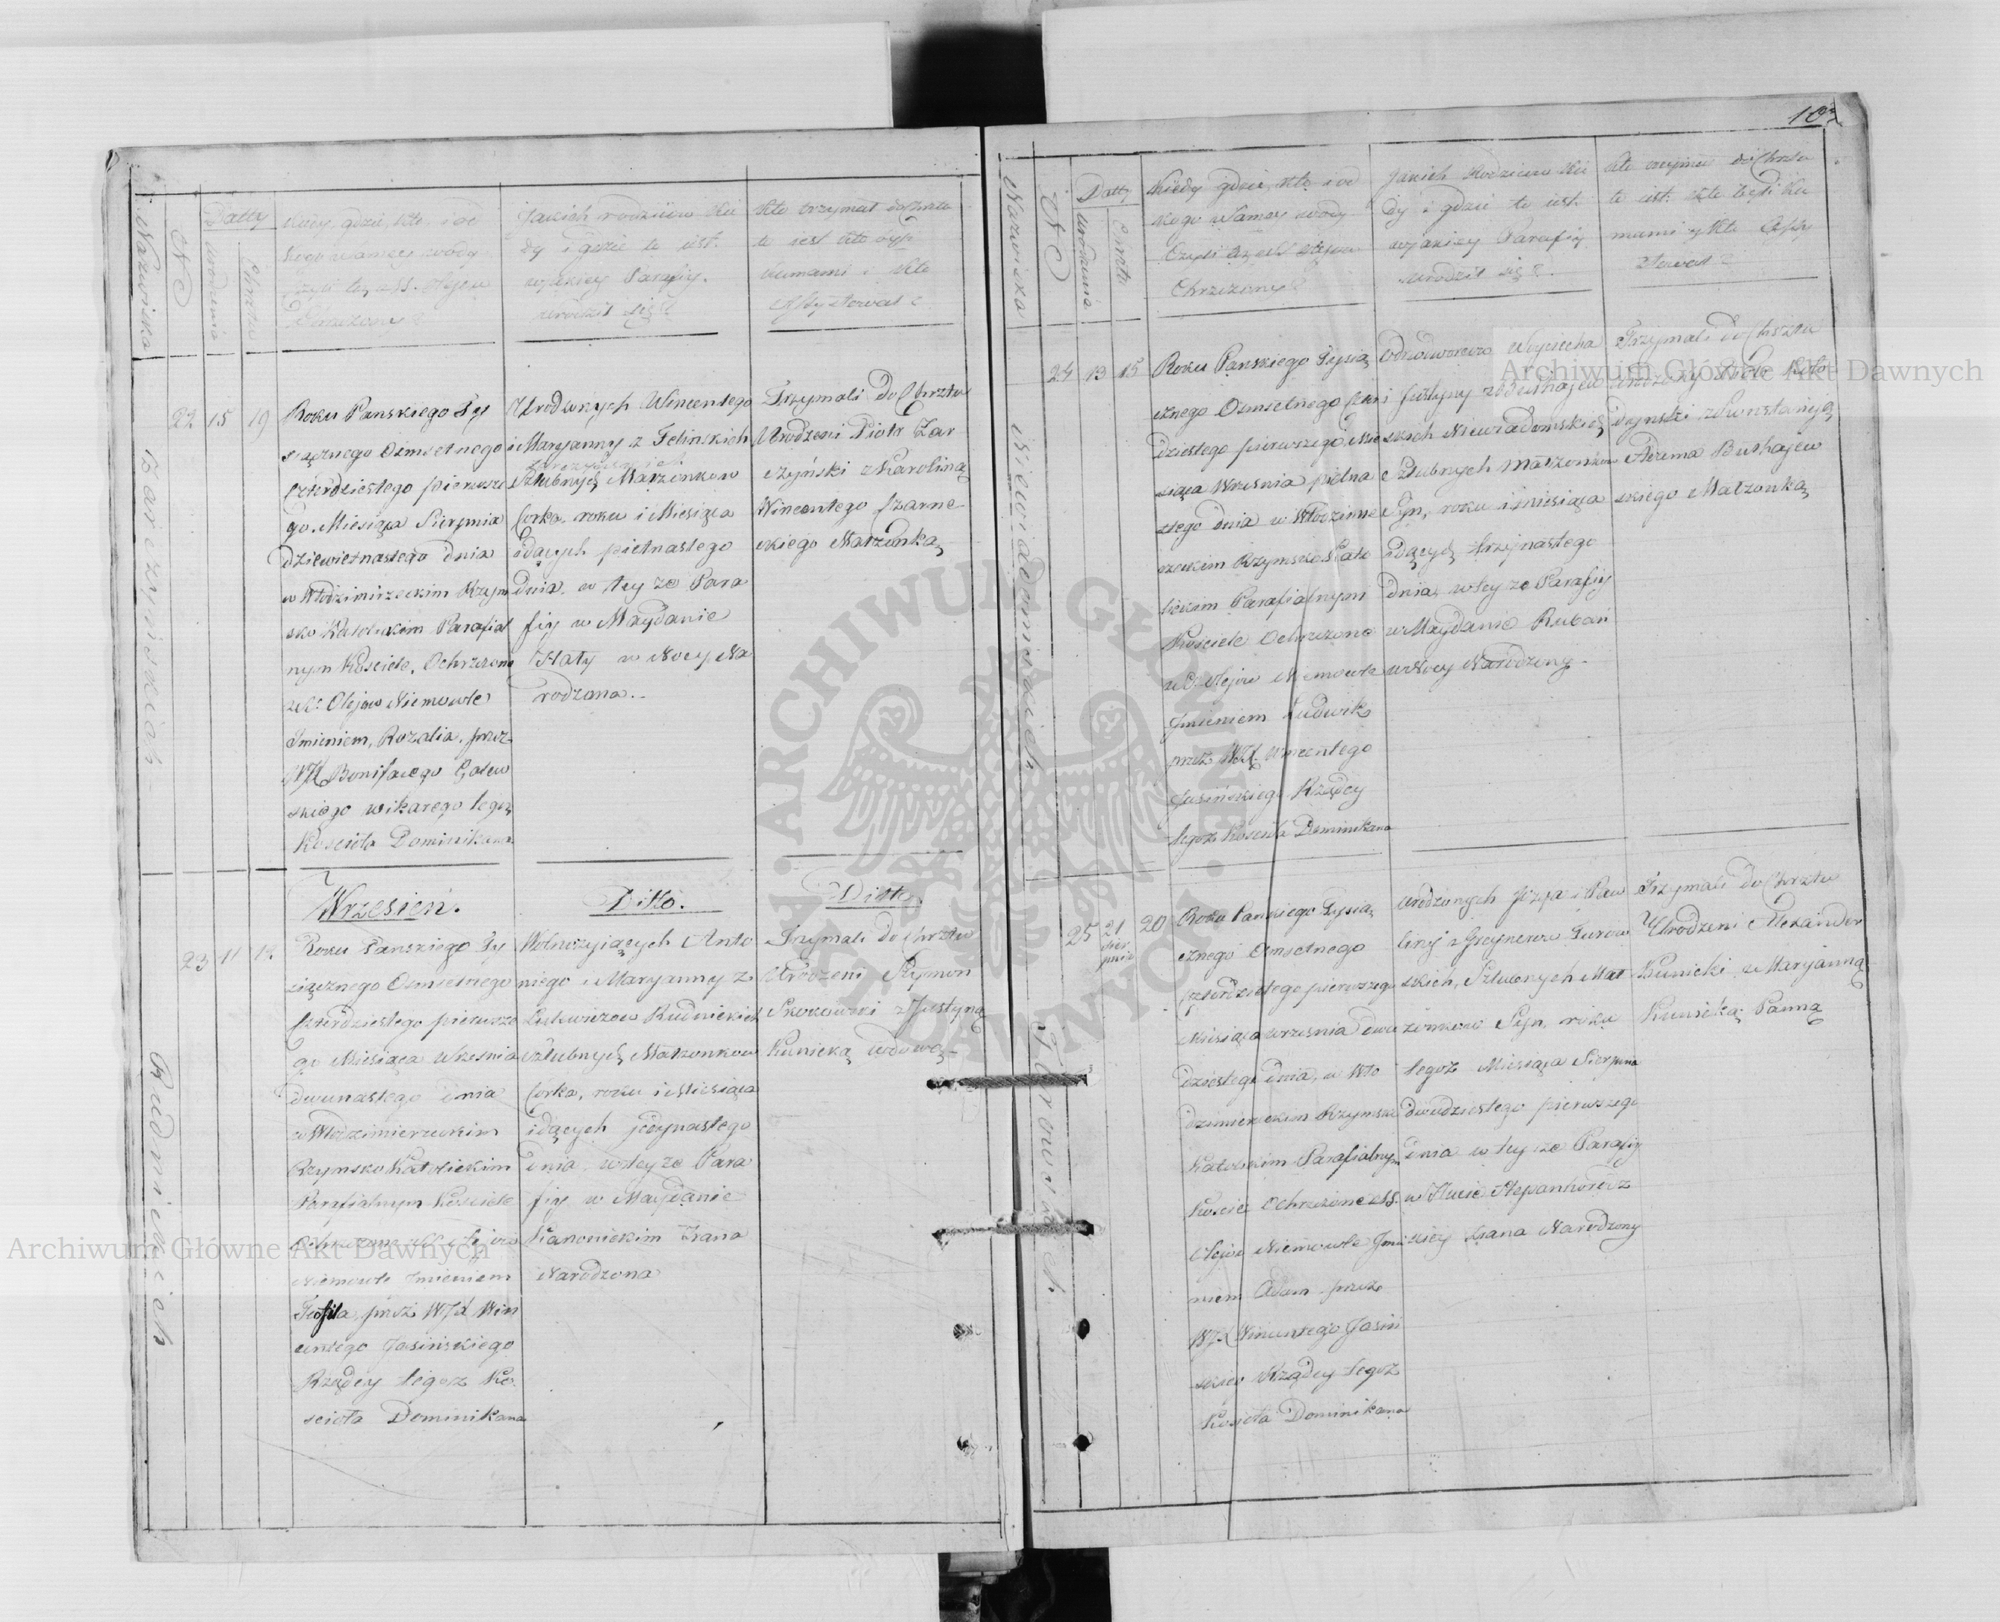 Nazwiska
No
Datta
urodzenia
Chrztu
Kiedy gdzie, kto i od
kogo z samej wody
czyli tez z SS. Olejow
Chrzczony?
Jakich rodziców Kie
dy i gdzie to jest.
w jakiey Parafiy.
urodził się?
Kto trzymał do Chrztu
to jest kto był
kumami i kto
assystował?
Barczyńskich
22 15 19
Roku Panskiego Ty
siącznego Osmsetnego
Czterdziestego pierwsze
go, Miesiąca Sierpnia
dziewietnastego dnia
w Włodzimirzeckim Rzym
sko Katolickim Parafial
nym Kosciele, Ochrzczono
z SS. Olejow Niemowle
Imieniem, Rozalia, przez
WJX Bonifacego
skiego wikarego tegoz
Kosciola Dominikana
Urodzonych Wincentego
i Maryanny z Felinskich
Szlubnych Małżonkow
Corka, roku i Miesiąca
idących pietnastego
dnia, w tey ze Para
fiy w Maydanie
Haty w Nocy Na
rodzona.
Trzymali do Chrztu
Urodzeni Piotr Zar
czyński z Karoliną
Wincentego Czarne
ckiego Małżonką
Rudnickich
23 11 12
Wrzesień.
Roku Panskiego Ty
siącznego Osmsetnego
Czterdziestego pierwsze
go Miesiąca Wrzesnia
dwunastego dnia
w Włodzimierzeckim
Rzymsko Katolickim
Parafialnym Kosciele
Ochrzczono z SS. Olejow
Niemowle Imieniem
Teofila, przez WJX Win
centego Jasińskiego
Rządcy tegoz Ko
sciola Dominikana
Ditto.
Wolnozyjących Anto
niego i Maryanny z
Rudnickich
Szlubnych Małzonkow
Corka, roku i Miesiąca
idących jedynastego
dnia w tey ze Para
fiy w Maydanie
Kanonickim Zrana
Narodzona
Ditto.
Trzymali do Chrztu
Urodzeni Szymon
Skokowski z Justyną
Kunicką wdową
103
Nazwiska
No
Datty
urodzenia
Chrztu
Kiedy gdzie, kto i od
kogo z samey wody
Czyli tez z SS Olejow
Chrzczony?
Jakich Rodzicow Kie
dy i gdzie to jest.
w jakiey Parafiy
urodził się?
Kto trzymał do Chrztu
to jest. Kto byli Ku
mami y kto Assy
stował?
Niewiadomskich
24 13 15
Roku Panskiego Tysią
cznego Osmsetnego Czter
dziestego pierwszego Mie
siąca Wrzesnia pietna
stego dnia w Włodzimie
rzeckim Rzymsko Kato
lickim Parafialnym
Kosciele Ochrzczono
z SS. Olejow Niemowle
Imieniem Ludwik
przez WJX. Wincentego
Jasińskiego Rządcy
tegoz Kosciola Dominikana
Odnodworcow Woyciecha
i Justyny z Buthajew
skich Niewiadomskich
Szlubnych Małzonkow
Syn, roku i miesiąca
idących trzynastego
dnia, w tey ze Parafiy
w Maydanie Rubań
w Nocy Narodzony
Trzymali do Chrztu
z Konstancyą
Adama Buthajew
skiego Małzonką
Turowskich
25 21 Sierpnia 20
Roku Panskiego Tysią
cznego Osmsetnego
Czterdziestego pierwszego
Miesiąca wrzesnia dwu
dziestego dnia, w Wło
dzimierzeckim Rzymsko
Katolickim Parafialnym
Kosciele Ochrzczono z SS.
Olejow Niemowle Jmie
niem Adam przez
WJX Wincentego Jasiń
skiego Rządcy tegoz
Kosciola Dominikana
Urodzonych Józefa i Pau
liny z Greynerow Turow
skich, Szlubnych Mał
zonkow Syn, roku
tegoz Miesiąca Sierpnia
dwudziestego pierwszego
dnia w tey ze Parafiy
w Hucie Stepanhorodz
kiey Zrana Narodzony
Trzymali do Chrztu
Urodzeni Alexander
Kunicki, z Maryanną
Kunicką Panną
Archiwum Główne Akt Dawnych
Archiwum Główne Akt Dawnych
ARCHIWUM GŁÓWNE AKT DAWNYCH